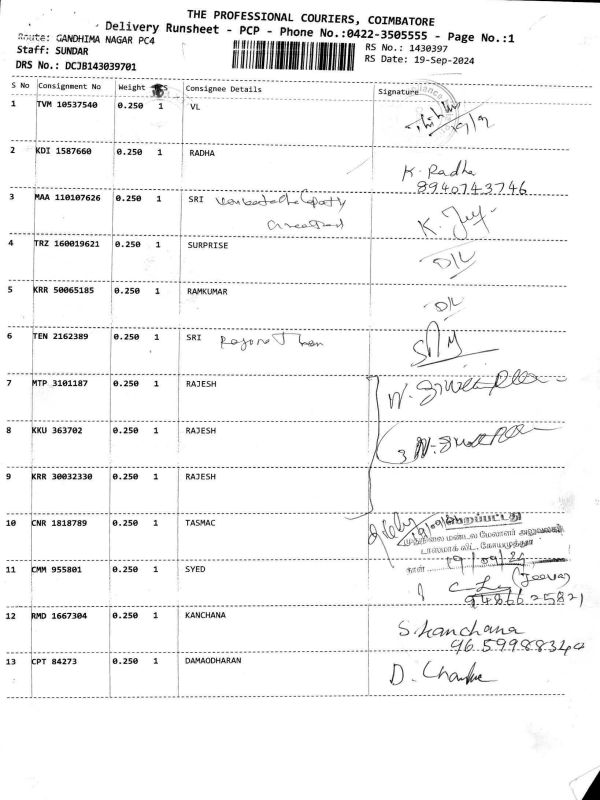 THE PROFESSIONAL COURIERS, COIMBATORE
Delivery Runsheet - PCP - Phone No.:0422-3505555 - Page No.:1
Route: GANDHIMA NAGAR PC4
Staff: SUNDAR
DRS No.: DCJB143039701
RS No.: 1430397
RS Date: 19-Sep-2024
S No Consignment No Weight Consignee Details Signature
1 TVM 10537540 0.250 1 VL
19/9
2 KDI 1587660 0.250 1 RADHA
K. Radha
8940743746
3 MAA 110107626 0.250 1 SRI
K.
4 TRZ 160019621 0.250 1 SURPRISE
D/L
5 KRR 50065185 0.250 1 RAMKUMAR
D/L
6 TEN 2162389 0.250 1 SRI
7 MTP 3101187 0.250 1 RAJESH
8 KKU 363702 0.250 1 RAJESH
9 KRR 30032330 0.250 1 RAJESH
10 CNR 1818789 0.250 1 TASMAC
பெறப்பட்டது
முதுநிலை மண்டல மேலாளர் அலுவலகம்
டாஸ்மாக் லிட்., கோயமுத்தூர்
நாள் 19/09/24
11 CMM 955801 0.250 1 SYED
(Jeeva)
9486625821
12 RMD 1667304 0.250 1 KANCHANA
S. Kanchana
13 CPT 84273 0.250 1 DAMAODHARAN
D.